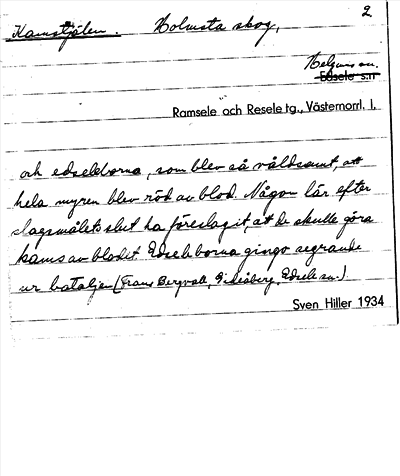 Kamstjälen. Holmsta skog, 2
Helgums sn.
Edsele s:n
Ramsele och Resele tg., Västernorrl. l.
och edseleborna, som blev så våldsamt, att
hela myren blev röd av blod. Någon lär efter
slagsmålets slut ha föreslagit, att de skulle göra
kams av blodet. Edseleborna gingo segrande
ur bataljen (Frans Bergvall, Gideåberg, Edsele sn.)
Sven Hiller 1934